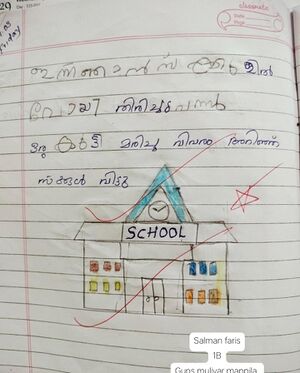 29
Friday
classmate
Date
Page
ഇന്ന് ഞാൻ സ്കൂളിൽ
പോയി തിരിച്ചു വന്നു
ഒരു കുട്ടി മരിച്ച വിവരം അറിഞ്ഞ്
സ്കൂൾ വിട്ടു
SCHOOL
Salman faris
1B
Gups muliyar mappila